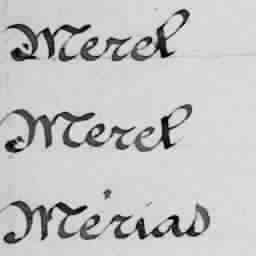 Merel
Merel
Merias